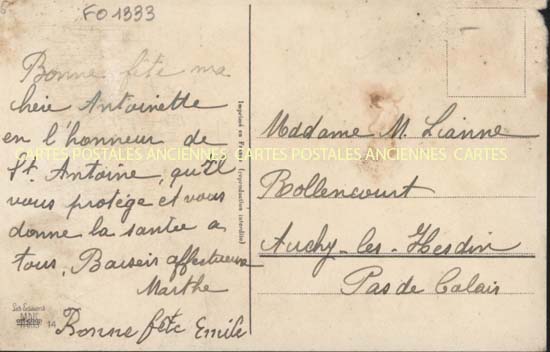 FO 1333
Bonne fête ma
chère Antoinette
en l'honneur de
St. Antoine, qu'Il
vous protége et vous
donne la santée a
tous, Baisers affectueux
Marthe
Bonne fête Emile
14
Imprimé en France (reproduction interdite)
Madame M. Lianne
Rollencourt
Auchy-les-Hesdin
Pas de Calais
CARTES POSTALES ANCIENNES CARTES POSTALES ANCIENNES CARTES